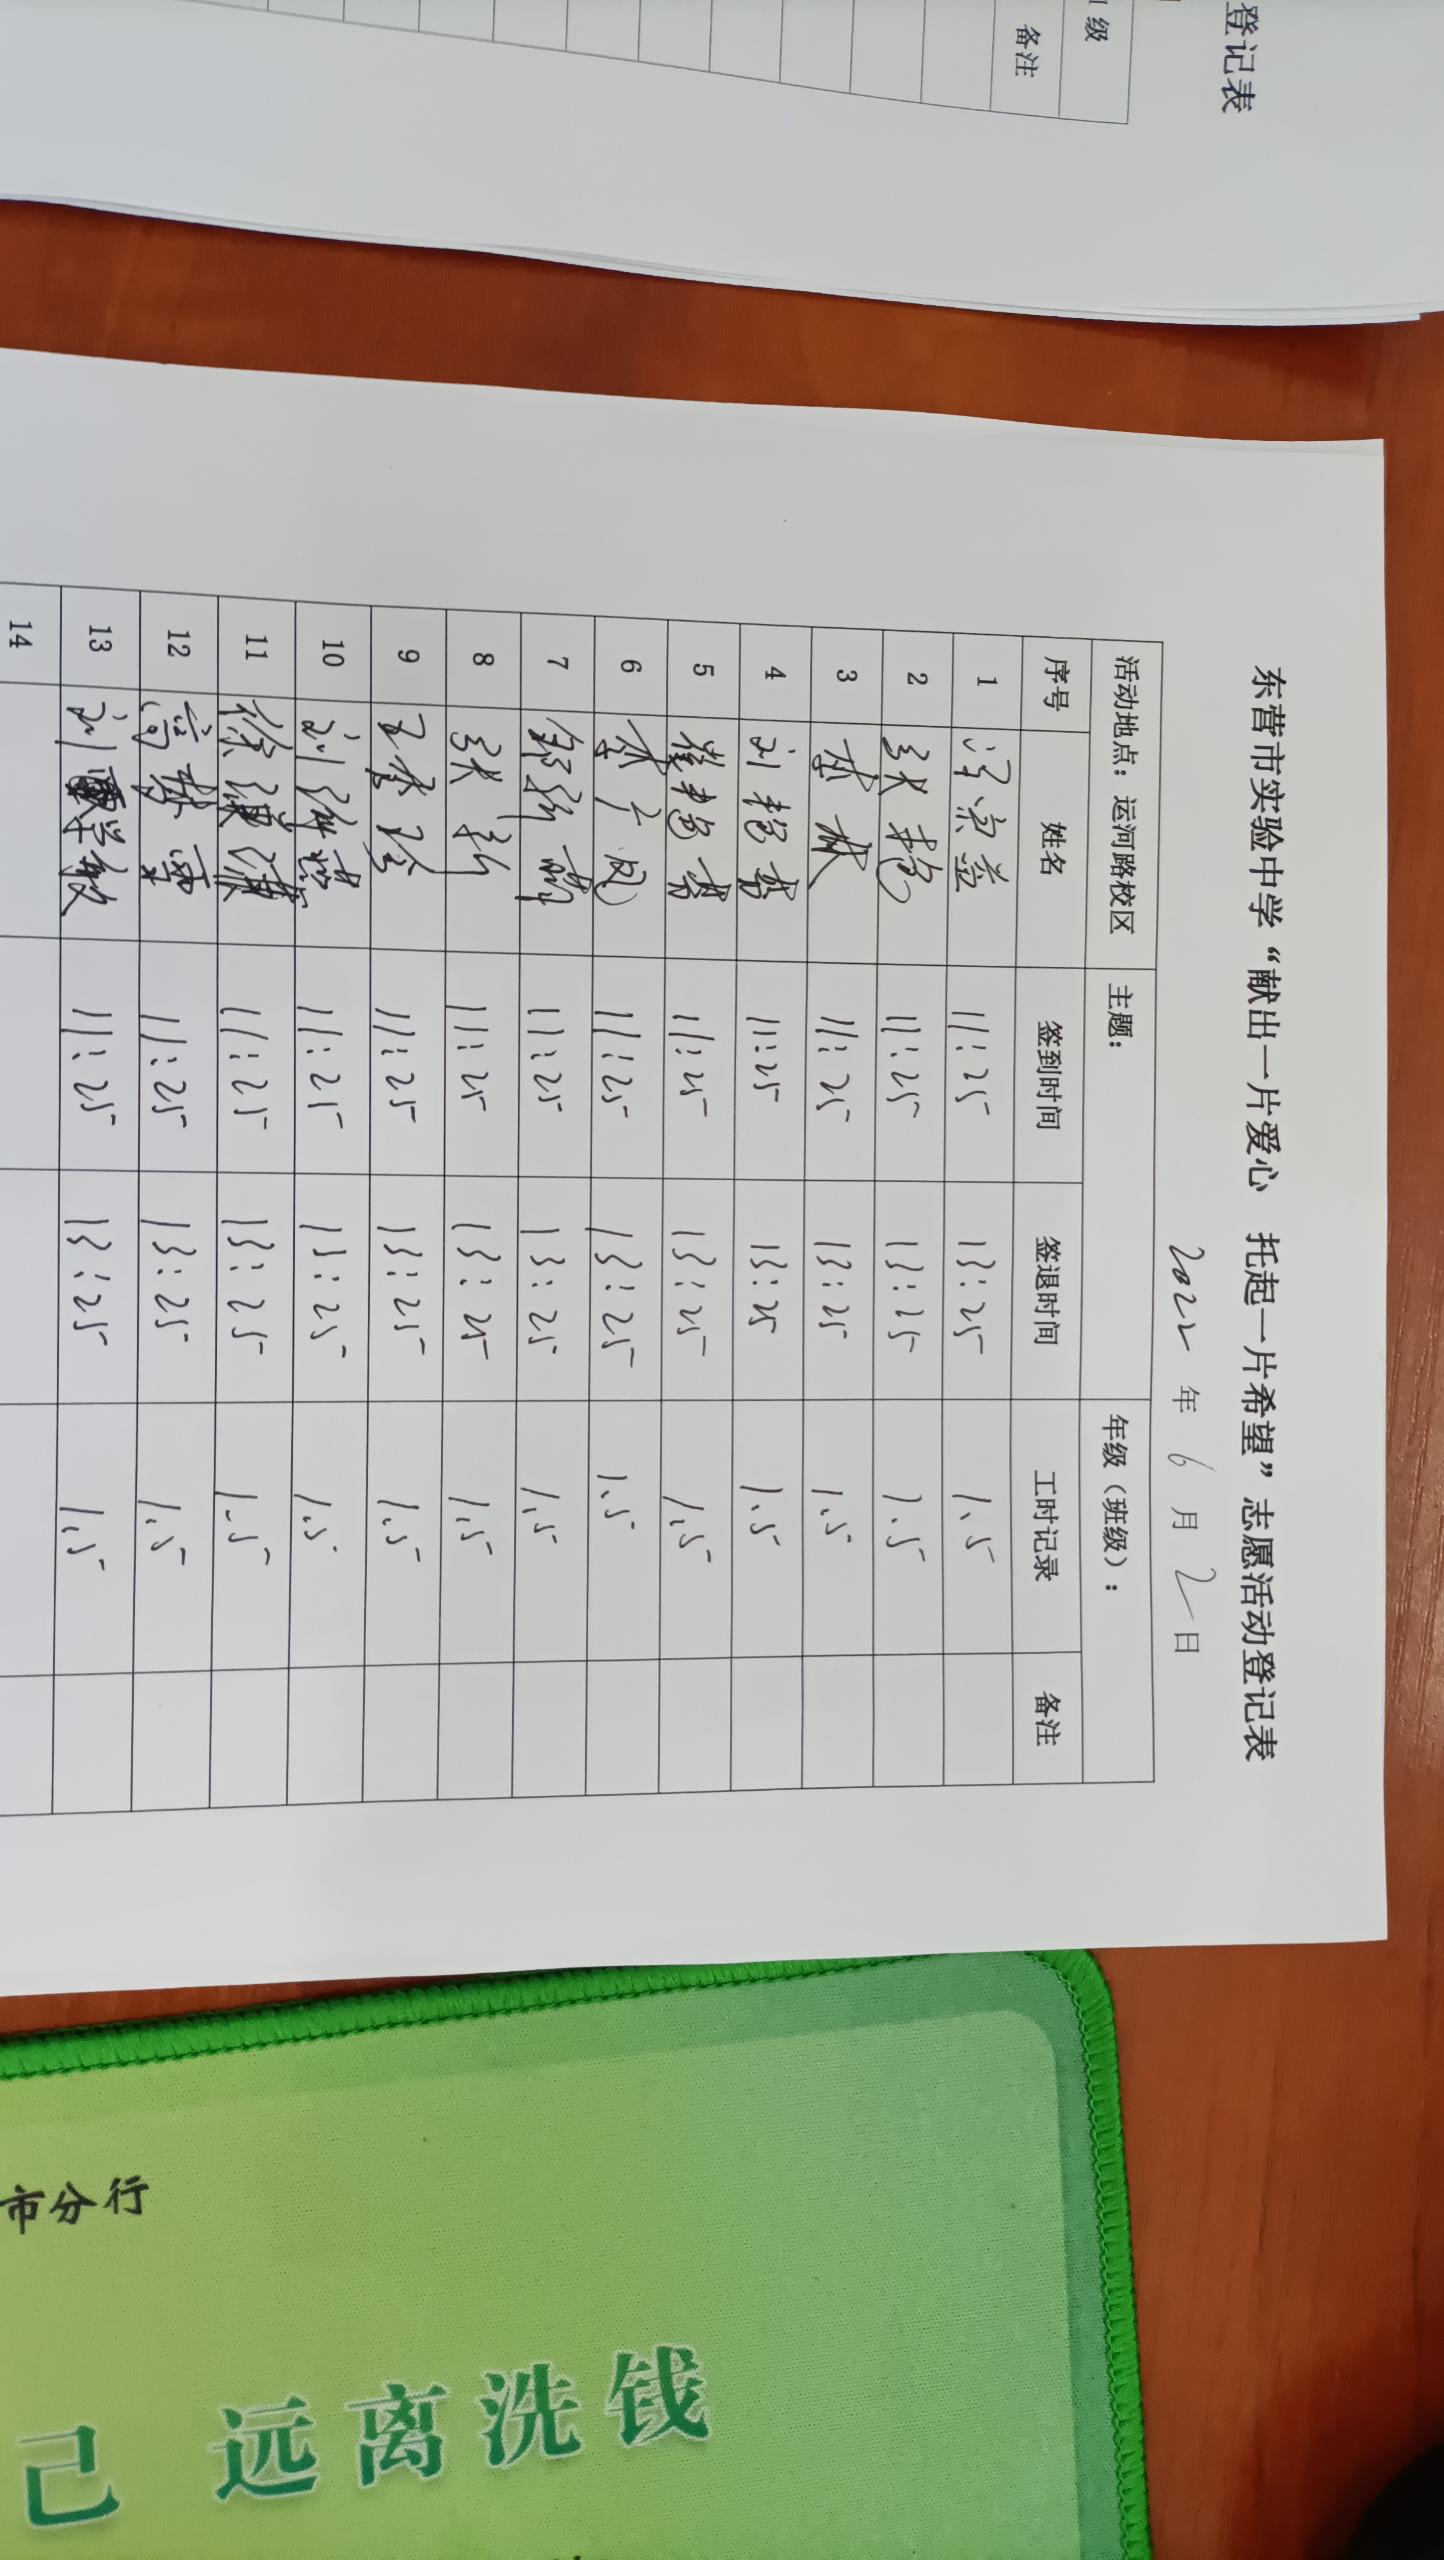 登记表
级
备注
东营市实验中学“献出一片爱心 托起一片希望”志愿活动登记表
2022年6月2日
活动地点：运河路校区 主题： 年级（班级）：
序号 姓名 签到时间 签退时间 工时记录 备注
1 11:25 13:25 1.5
2 张艳 11:25 13:25 1.5
3 李林 11:25 13:25 1.5
4 刘艳秀 11:25 13:25 1.5
5 11:25 13:25 1.5
6 李广凤 11:25 13:25 1.5
7 11:25 13:25 1.5
8 张新 11:25 13:25 1.5
9 11:25 13:25 1.5
10 刘 11:25 13:25 1.5
11 徐 11:25 13:25 1.5
12 高梦雪 11:25 13:25 1.5
13 刘学敏 11:25 13:25 1.5
14
市分行
己 远离洗钱